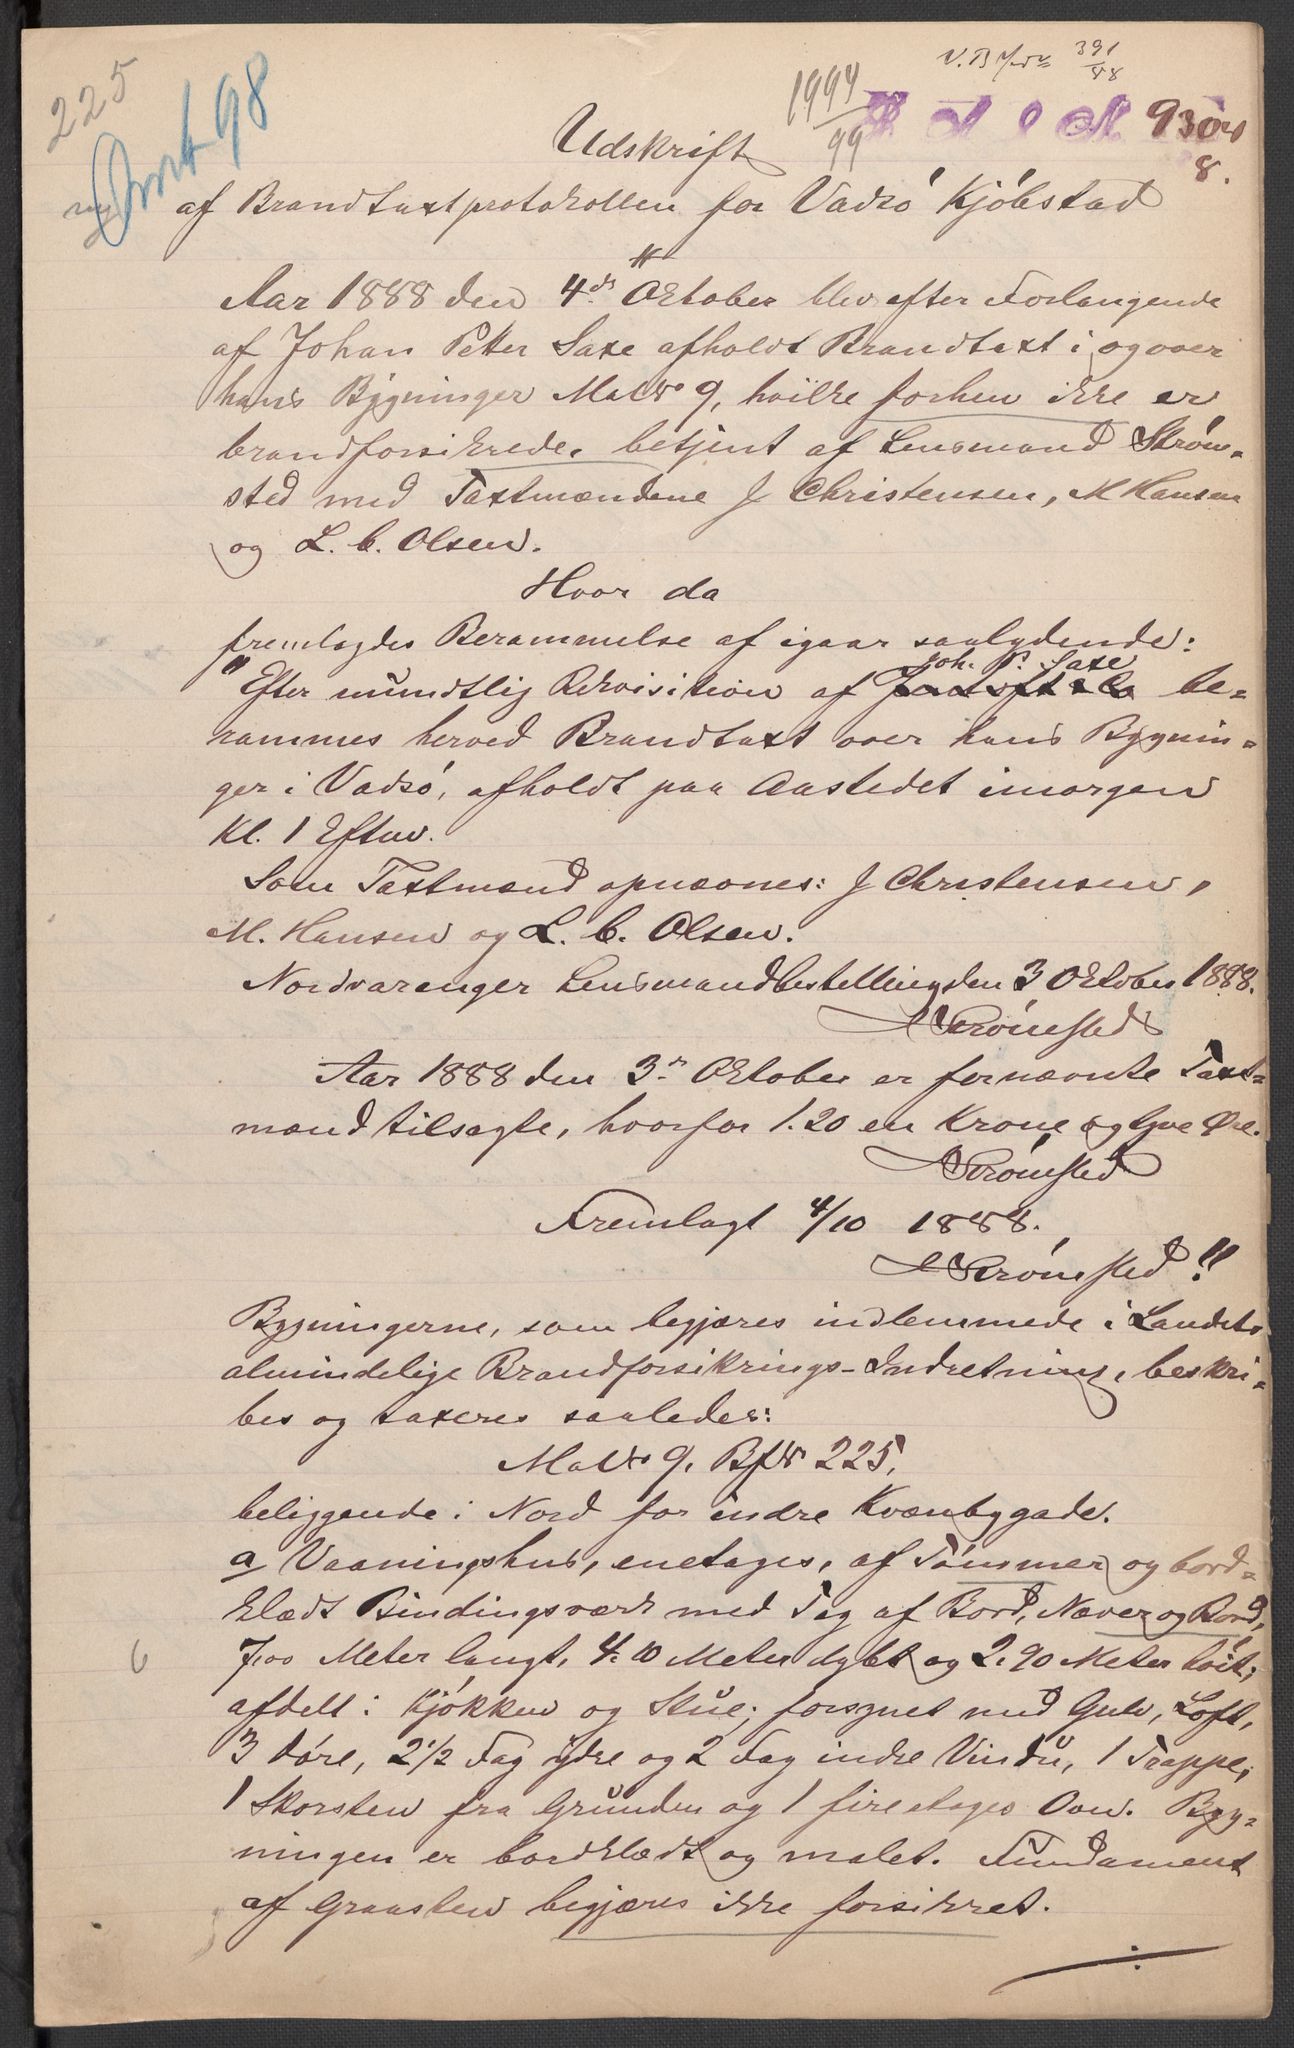 225
ny
Omt 98
1994/99
391/88
930 8.
Udskrift
af Brandtaxtprotokollen for Vadsö Kjöbstad
Aar 1888 den 4de Oktober blev efter Forlangende
af Johan Petter Saxe afholdt Brandtaxt i og over
hans Bÿgninger MatNr 9, hvilke forhen ikke er
brandforsikrede, betjent af Lensmand Ström-
sted med Taxtmændene J Christensen, M Hansen
og L. C. Olsen.
Hvor da
fremlagdes Berammelse af igaar saalydende:
"Efter mundtlig Rekvisition af Joh. P. Saxe be-
rammes herved Brandtaxt over hans Bygnin-
ger i Vadsö, afholdt paa Aastedet imorgen
Kl. 1 Efterm.
Som Taxtmænd opnævnes: J Christensen,
M. Hansen og L. C. Olsen.
Nordvaranger Lensmandbestilling den 3 Oktober 1888.
A Strömsted
Aar 1888 den 3de Oktober er fornævnte Taxt-
mænd tilsagte, hvorfor 1.20 en Krone og tyve Øre.
A Strömsted
Fremlagt 4/10 1888.
A Strömsted"
Bygningerne, som begjæres indlemmede i Landets
almindelige Brandforsikrings-Indretning, beskri-
bes og taxeres saaledes:
MatNr 9. BfNr 225,
beliggende i Nord for indre Kvænbygade.
a Vaaningshus, enetages, af Tömmer og bord-
klædt Bindingsværk med Tag af Bord, Næver og Bord,
7,00 Meter langt, 4.10 Meter dybt og 2.90 Meter höit;
6
afdelt i Kjökken og Stue; forsynet med Gulv, Loft,
3 Döre, 2 1/2 Fag ydre og 2 Fag indre Vindu, 1 Trappe,
1 Skorsten fra Grunden og 1 fireetages Ovn. Byg-
ningen er bordklædt og malet. Fundament
af Graasten begjæres ikke forsikret.